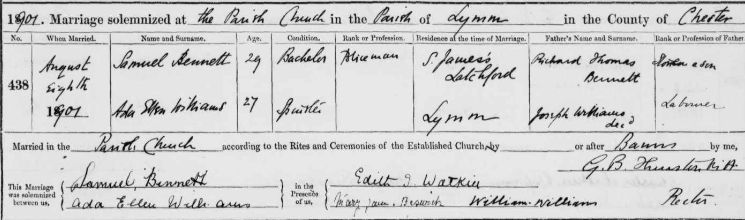 1901. Marriage solemnized at the Parish Church in the Parish of Lymm in the County of Chester
No. When Married. Name and Surname. Age. Condition. Rank or Profession. Residence at the time of Marriage. Father's Name and Surname. Rank or Profession of Father
438 August Eighth 1901
Samuel Bennett 29 Bachelor St James's Latchford Richard Thomas Bennett
Ada Ellen Williams 27 Spinster Lymm Joseph Williams dec'd Labourer
Married in the Parish Church according to the Rites and Ceremonies of the Established Church, by or after Banns by me,
G. B.
This Marriage was solemnized between us, Samuel Bennett in the Presence of us, Edith J. Watkin
Ada Ellen Williams Mary Jane William Williams Rector.